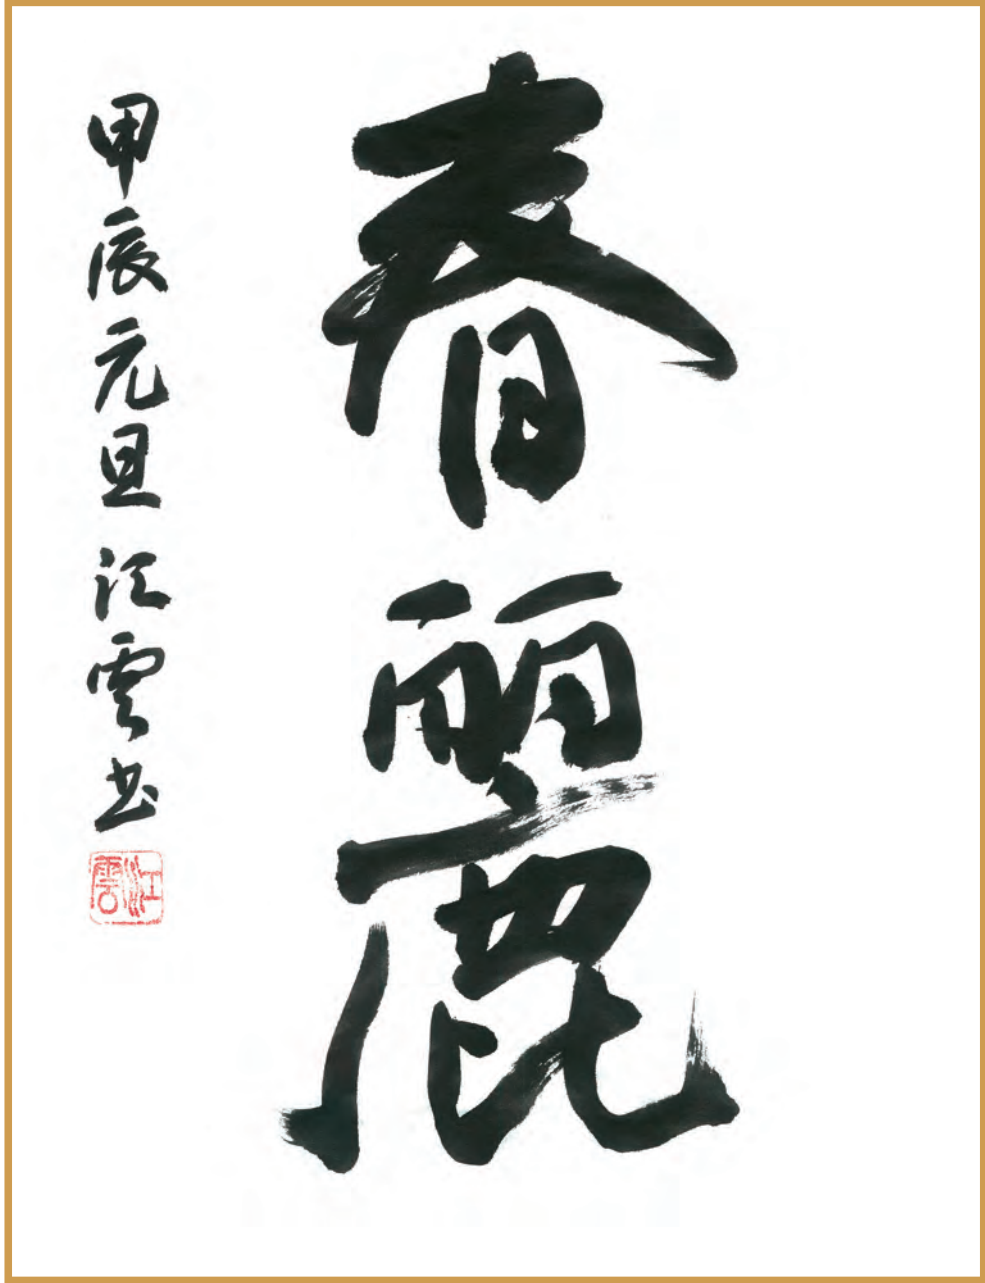 春麗
甲辰元旦 江雲书
江雲